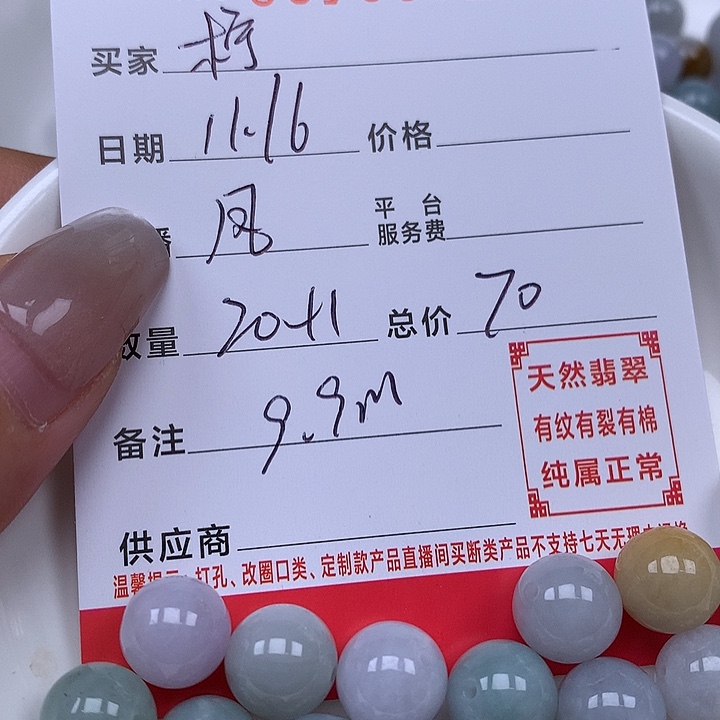 买家
日期 11.16 价格
播 凤 平台
服务费
数量 20+1 总价 70
备注 9.9m
供应商
天然翡翠
有纹有裂有棉
纯属正常
温馨提示：打孔、改圈口类、定制款产品直播间买断类产品不支持七天无理由退换